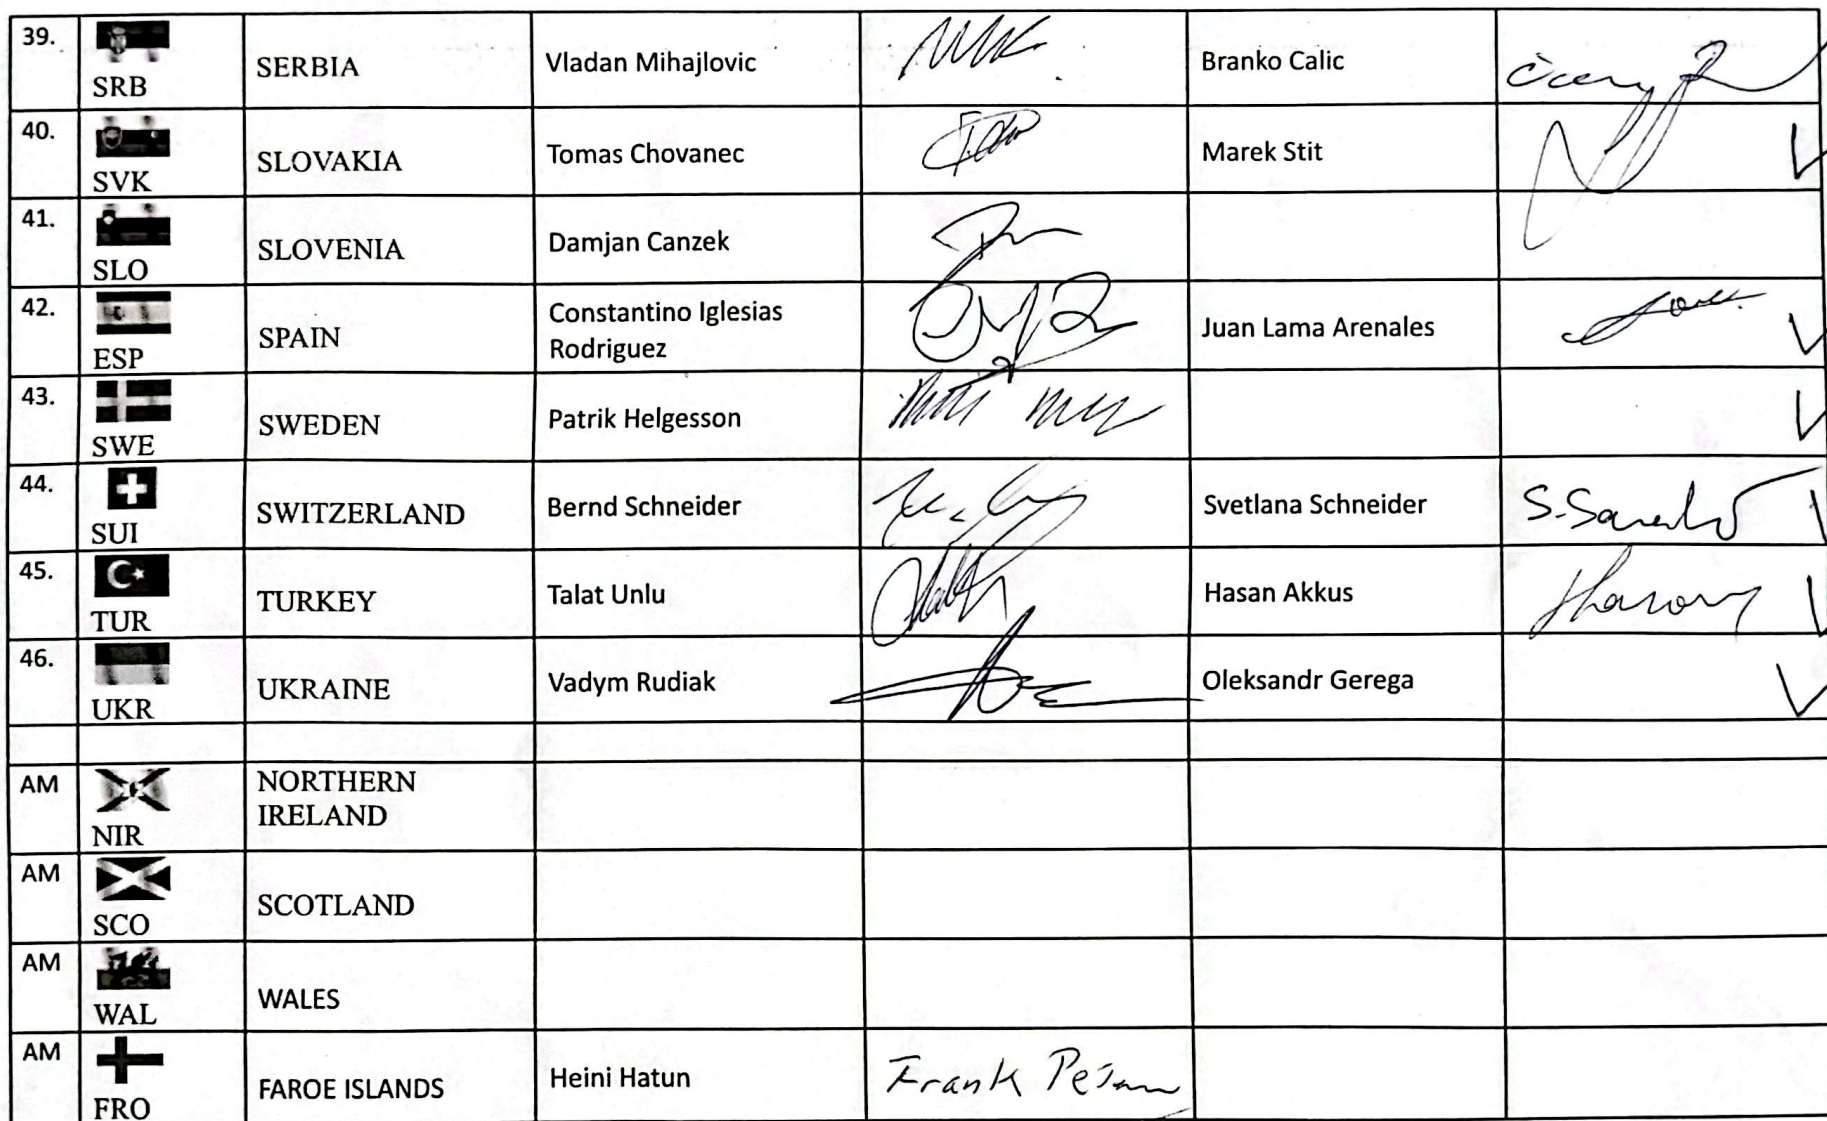 39.
SRB
SERBIA
Vladan Mihajlovic
Branko Calic
40.
SVK
SLOVAKIA
Tomas Chovanec
Marek Stit
41.
SLO
SLOVENIA
Damjan Canzek
42.
ESP
SPAIN
Constantino Iglesias
Rodriguez
Juan Lama Arenales
43.
SWE
SWEDEN
Patrik Helgesson
44.
SUI
SWITZERLAND
Bernd Schneider
Svetlana Schneider
45.
TUR
TURKEY
Talat Unlu
Hasan Akkus
46.
UKR
UKRAINE
Vadym Rudiak
Oleksandr Gerega
AM
NIR
NORTHERN
IRELAND
AM
SCO
SCOTLAND
AM
WAL
WALES
AM
FRO
FAROE ISLANDS
Heini Hatun
Frank